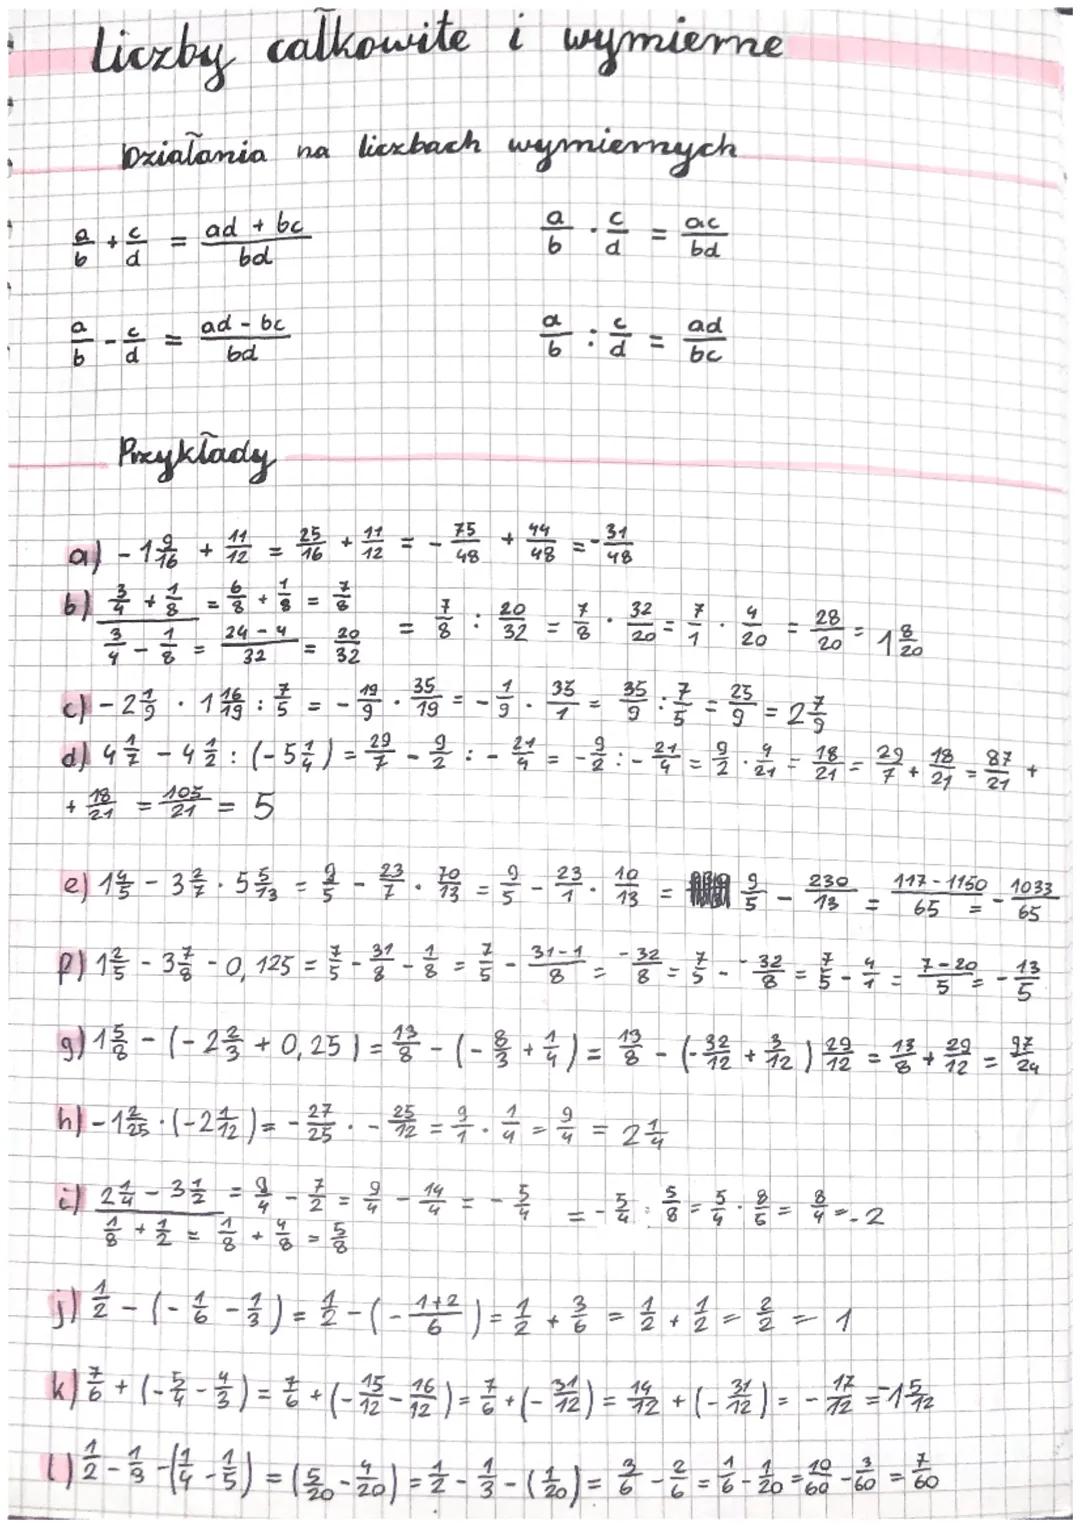 Liczby całkowite i wymierne
Działania na liczbach wymiernych
a/b + c/d = (ad + bc)/bd    a/b · c/d = ac/bd
a/b - c/d = (ad - bc)/bd    a/b : c/d = ad/bc
Przykłady
a) -1 9/16 + 11/12 = 25/16 + 11/12 = - 75/48 + 44/48 = - 31/48
b) 3/4 + 1/8 = 6/8 + 1/8 = 7/8
3/4 - 1/8 = (24 - 4)/32 = 20/32 = 7/8 : 20/32 = 7/8 · 32/20 = 7/1 · 4/20 = 28/20 = 1 8/20
c) -2 1/9 · 1 16/19 : 7/5 = - 19/9 · 35/19 = - 1/9 · 35/1 = 35/9 : 7/5 = 25/9 = 2 7/9
d) 4 1/7 - 4 1/2 : (-5 1/4) = 29/7 - 9/2 : - 21/4 = - 9/2 : - 21/4 = 9/2 · 4/21 = 18/21 = 29/7 + 18/21 = 87/21 +
+ 18/21 = 105/21 = 5
e) 1 4/5 - 3 2/7 · 5 5/13 = 9/5 - 23/7 · 70/13 = 9/5 - 23/1 · 10/13 = 9/5 - 230/13 = (117 - 1150)/65 = - 1033/65
f) 1 2/5 - 3 7/8 - 0,125 = 7/5 - 31/8 - 1/8 = 7/5 - (31-1)/8 = -32/8 = 7/5 - -32/8 = 7/5 - 4/1 = (7-20)/5 = - 13/5
g) 1 5/8 - (-2 2/3 + 0,25) = 13/8 - (- 8/3 + 1/4) = 13/8 - (- 32/12 + 3/12) 29/12 = 13/8 + 29/12 = 97/24
h) -1 2/25 · (-2 1/12) = - 27/25 · - 25/12 = 9/1 · 1/4 = 9/4 = 2 1/4
i) 2 1/4 - 3 1/2 = 9/4 - 7/2 = 9/4 - 14/4 = - 5/4 = - 5/4 : 5/8 = 5/4 · 8/5 = 8/4 = -2
1/8 + 1/2 = 1/8 + 4/8 = 5/8
j) 1/2 - (- 1/6 - 1/3) = 1/2 - (- (1+2)/6) = 1/2 + 3/6 = 1/2 + 1/2 = 2/2 = 1
k) 7/6 + (- 5/4 - 4/3) = 7/6 + (- 15/12 - 16/12) = 7/6 + (- 31/12) = 14/12 + (- 31/12) = - 17/12 = -1 5/12
l) 1/2 - 1/3 - (1/4 - 1/5) = (5/20 - 4/20) = 1/2 - 1/3 - (1/20) = 3/6 - 2/6 = 1/6 - 1/20 = 10/60 - 3/60 = 7/60